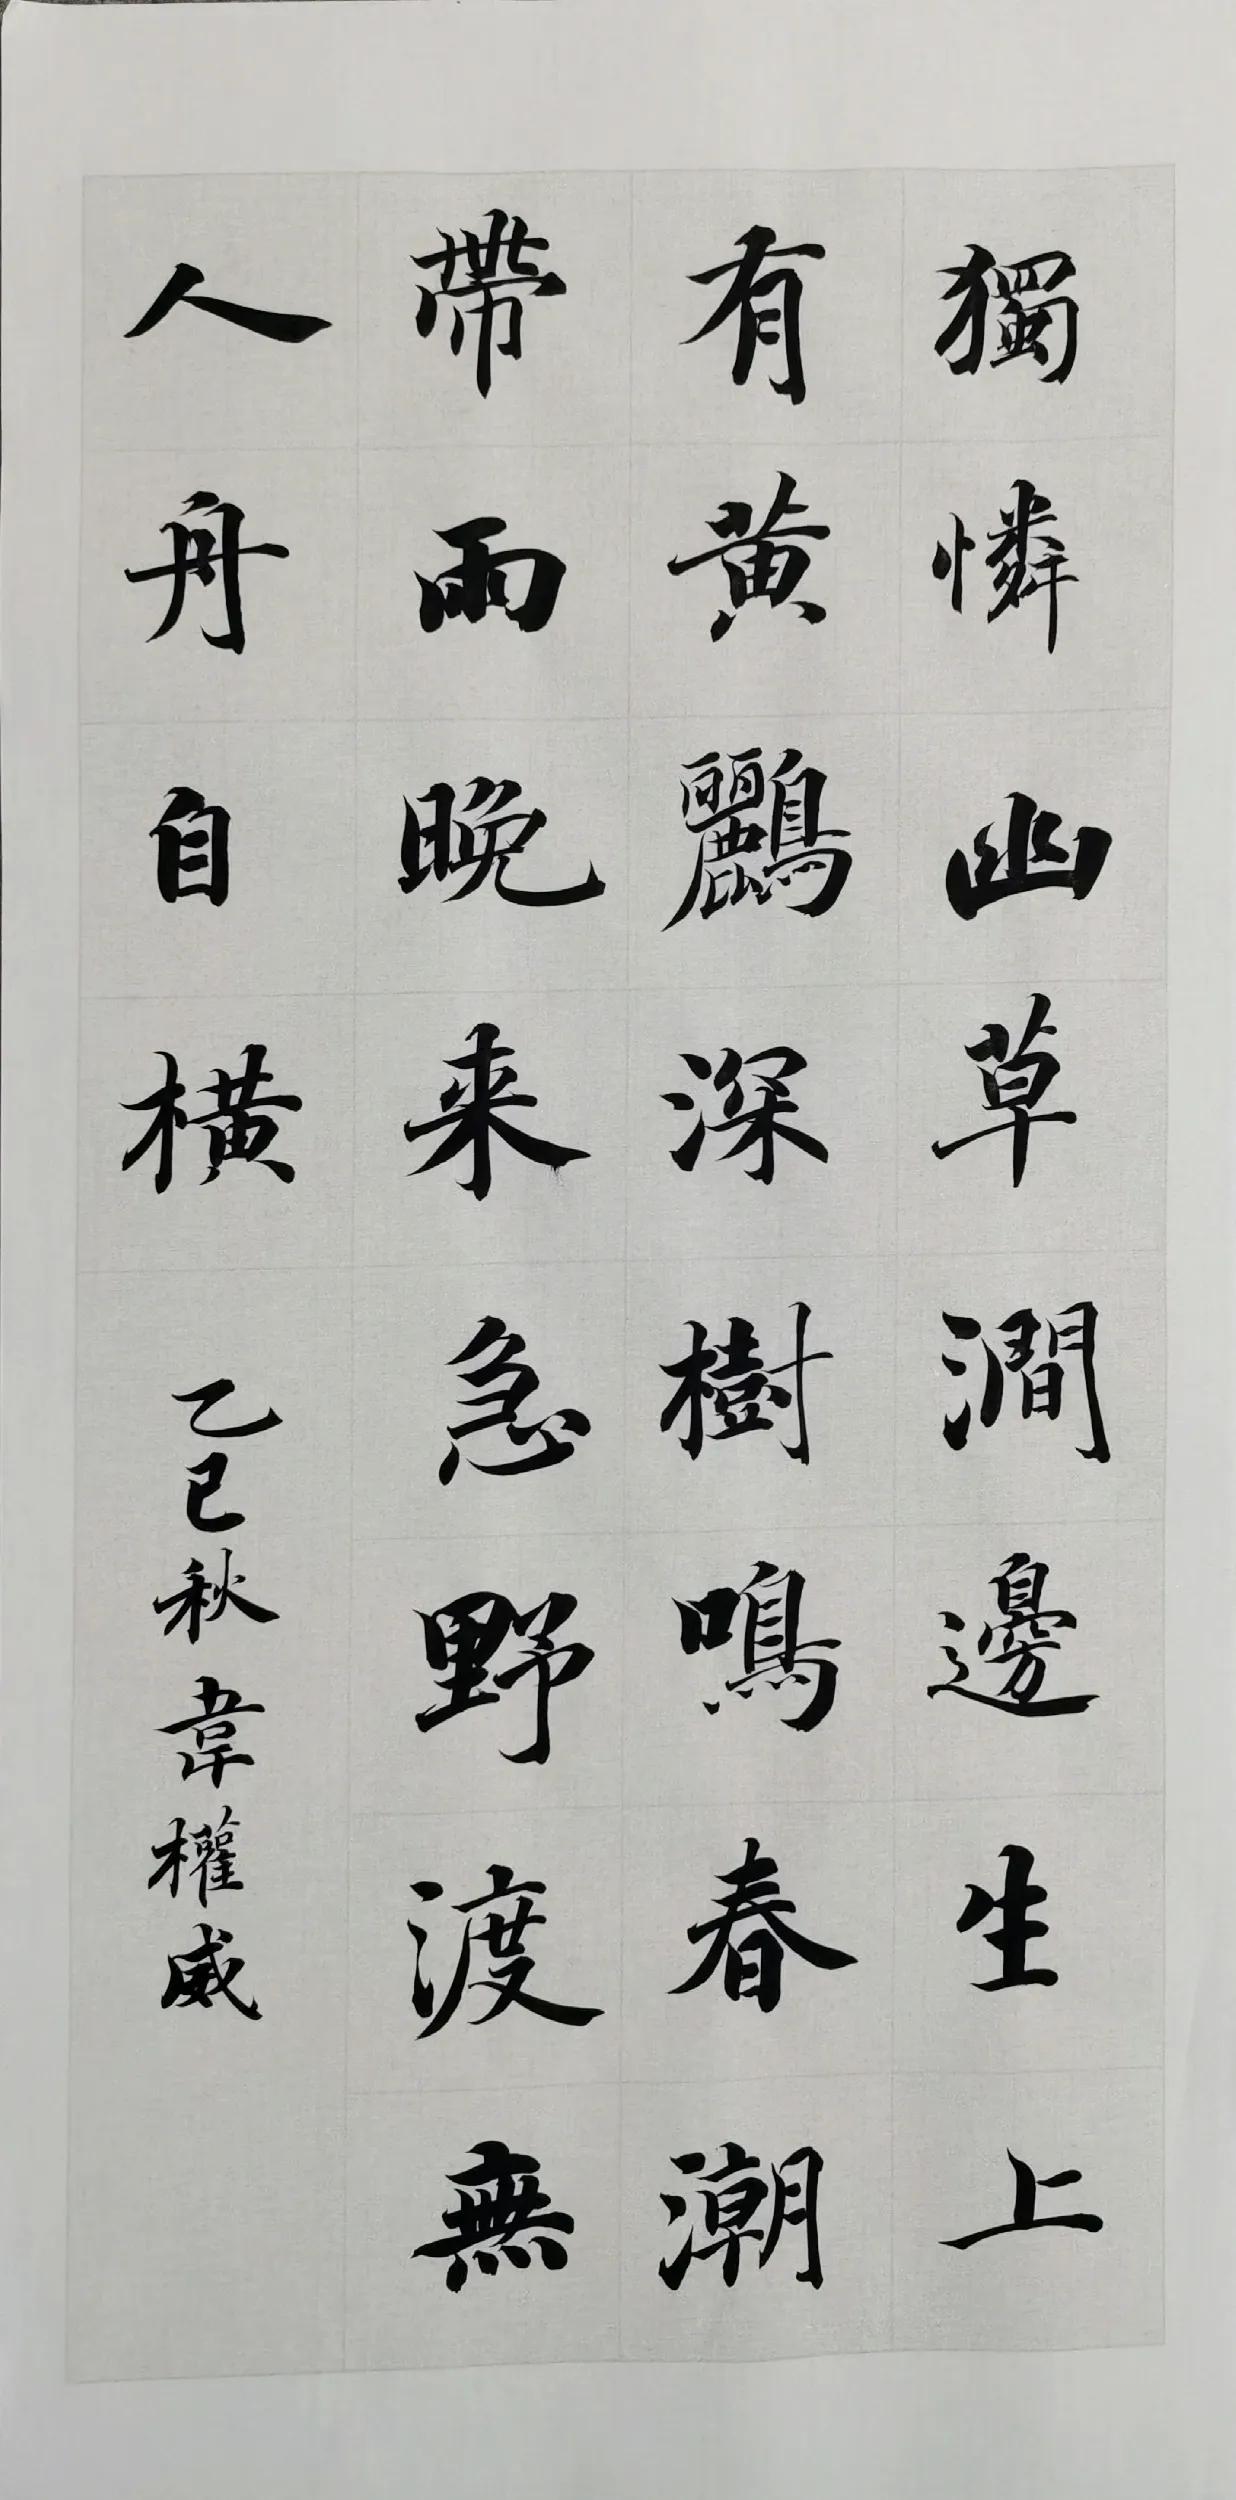 獨憐幽草澗邊生上
有黃鸝深樹鳴春潮
帶雨晚来急野渡無
人舟自橫
乙巳秋韋權威